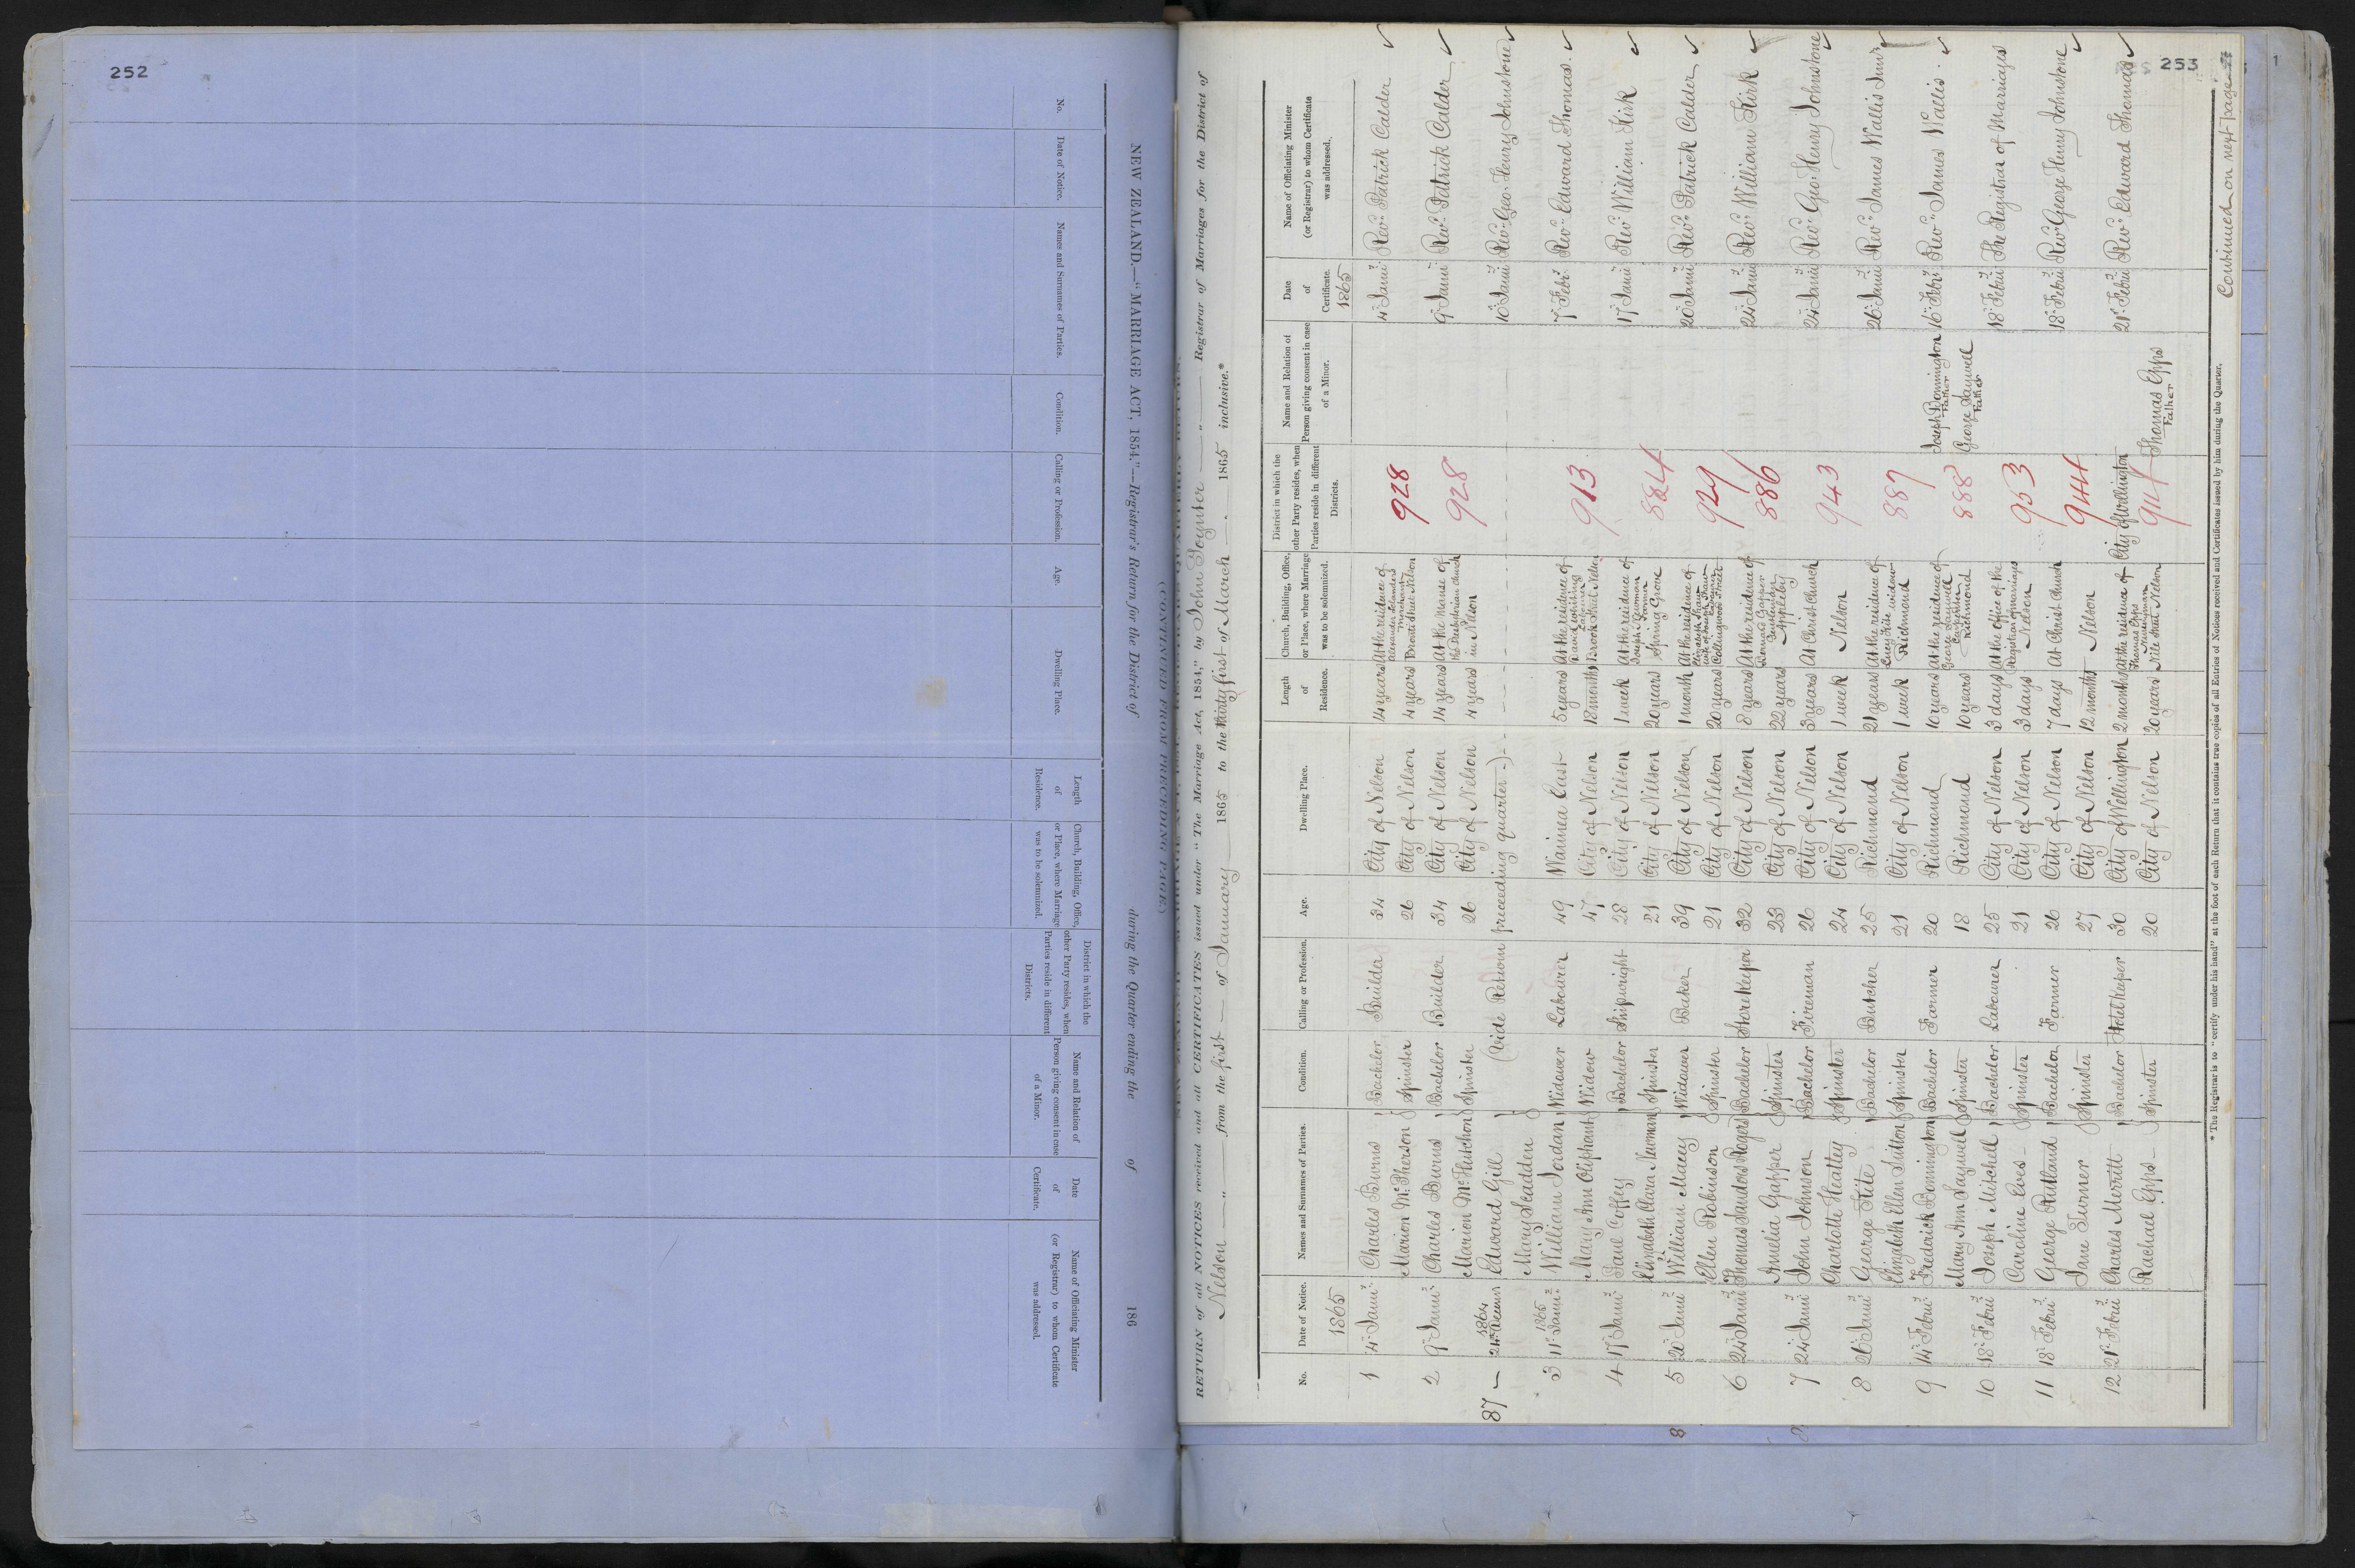 252
NEW ZEALAND.—"MARRIAGE ACT, 1854."—Registrar's Return for the District of during the Quarter ending the of 186
(CONTINUED FROM PRECEDING PAGE.)
No.
Date of Notice.
Names and Surnames of Parties.
Condition.
Calling or Profession.
Age.
Dwelling Place.
Length of Residence.
Church, Building, Office, or Place, where Marriage was to be solemnized.
District in which the other Party resides, when Parties reside in different Districts.
Name and Relation of Person giving consent in case of a Minor.
Date of Certificate.
Name of Officiating Minister (or Registrar) to whom Certificate was addressed.
253
RETURN of all NOTICES received and all CERTIFICATES issued under "The Marriage Act, 1854," by John Poynter — " — Registrar of Marriages for the District of
Nelson — " — from the first — of January — 1865 to the thirty first of March — 1865 inclusive.*
No.
Date of Notice.
Names and Surnames of Parties.
Condition.
Calling or Profession.
Age.
Dwelling Place.
Length of Residence.
Church, Building, Office, or Place, where Marriage was to be solemnized.
District in which the other Party resides, when Parties reside in different Districts.
Name and Relation of Person giving consent in case of a Minor.
Date of Certificate.
Name of Officiating Minister (or Registrar) to whom Certificate was addressed.
1865 1865
1 4 Janu Charles Burns Bachelor Builder 34 City of Nelson 14 years At the residence of 928 4 Janu Revd Patrick Calder
Alexander
Merchant
Marion McPherson Spinster 26 City of Nelson 4 years Bronti Street Nelson
2 9 Janu Charles Burns Bachelor Builder 34 City of Nelson 14 years At the Manse of 928 9 Janu Revd Patrick Calder
the Presbyterian Church
Marion McHutchon Spinster 26 City of Nelson 4 years in Nelson
87 — 1864 24 Decem Edward Gill (Vide Return preceeding quarter —) 10 Janu Revd Geo. Henry Johnstone
Mary Scadden
3 1865 11 Janu William Jordan Widower Labourer 49 Waimea East 5 years At the residence of 913 7 Febr Revd Edward Thomas.
David
Labourer
Mary Ann Oliphant Widow 47 City of Nelson 18 months Brook Street Nelson
4 17 Janu Jane Coffey Bachelor Shipwright 28 City of Nelson 1 week At the residence of 884 17 Janu Revd William Kirk
Joseph Newman
Farmer
Elizabeth Clara Newman Spinster 21 City of Nelson 20 years Spring Grove
5 20 Janu William Macey Widower Baker 39 City of Nelson 1 month At the residence of 929 20 Janu Revd Patrick Calder
Elizabeth Shaw
wife of Joseph Shaw
Ellen Robinson Spinster 21 City of Nelson 20 years Collingwood Street
6 24 Janu Thomas Sandos Rogers Bachelor Storekeeper 32 City of Nelson 8 years At the residence of 886 24 Janu Revd William Kirk
Bernard Gapper
Gentleman
Amelia Gapper Spinster 23 City of Nelson 22 years Appleby
7 24 Janu John Johnson Bachelor Fireman 26 City of Nelson 3 years At Christ Church 943 24 Janu Revd Geo. Henry Johnstone
Charlotte Heattey Spinster 24 City of Nelson 1 week Nelson
8 26 Janu George Kite Bachelor Butcher 25 Richmond 21 years At the residence of 887 26 Janu Revd James Wallis Junr
Lucy Kite widow
Elizabeth Ellen Sutton Spinster 21 City of Nelson 1 week Richmond
9 14 Febru Frederick Bonnington Bachelor Farmer 20 Richmond 10 years At the residence of 888 Joseph Bonnington Father 16 Febr Revd James Wallis.
George Saywell
Carpenter
Mary Ann Saywell Spinster 18 Richmond 10 years Richmond George Saywell Father
10 18 Febru Joseph Mitchell Bachelor Labourer 25 City of Nelson 3 days At the Office of the 953 18 Febru The Registrar of Marriages
Registrar of marriages
Caroline Eves Spinster 21 City of Nelson 3 days Nelson
11 18 Febru George Rutland Bachelor Farmer 26 City of Nelson 7 days At Christ Church 944 18 Febru Revd George Henry Johnstone
Jane Turner Spinster 27 City of Nelson 12 months Nelson
12 21 Febru Charles Merritt Bachelor Hotel Keeper 30 City of Wellington 2 months At the residence of City of Wellington 21 Febru Revd Edward Thomas
Thomas Epps
Rachael Epps Spinster 20 City of Nelson 20 years Nile Street Nelson 914 Thomas Epps Father
* The Registrar is to "certify under his hand" at the foot of each Return that it contains true copies of all Entries of Notices received and Certificates issued by him during the Quarter.
Continued on next page